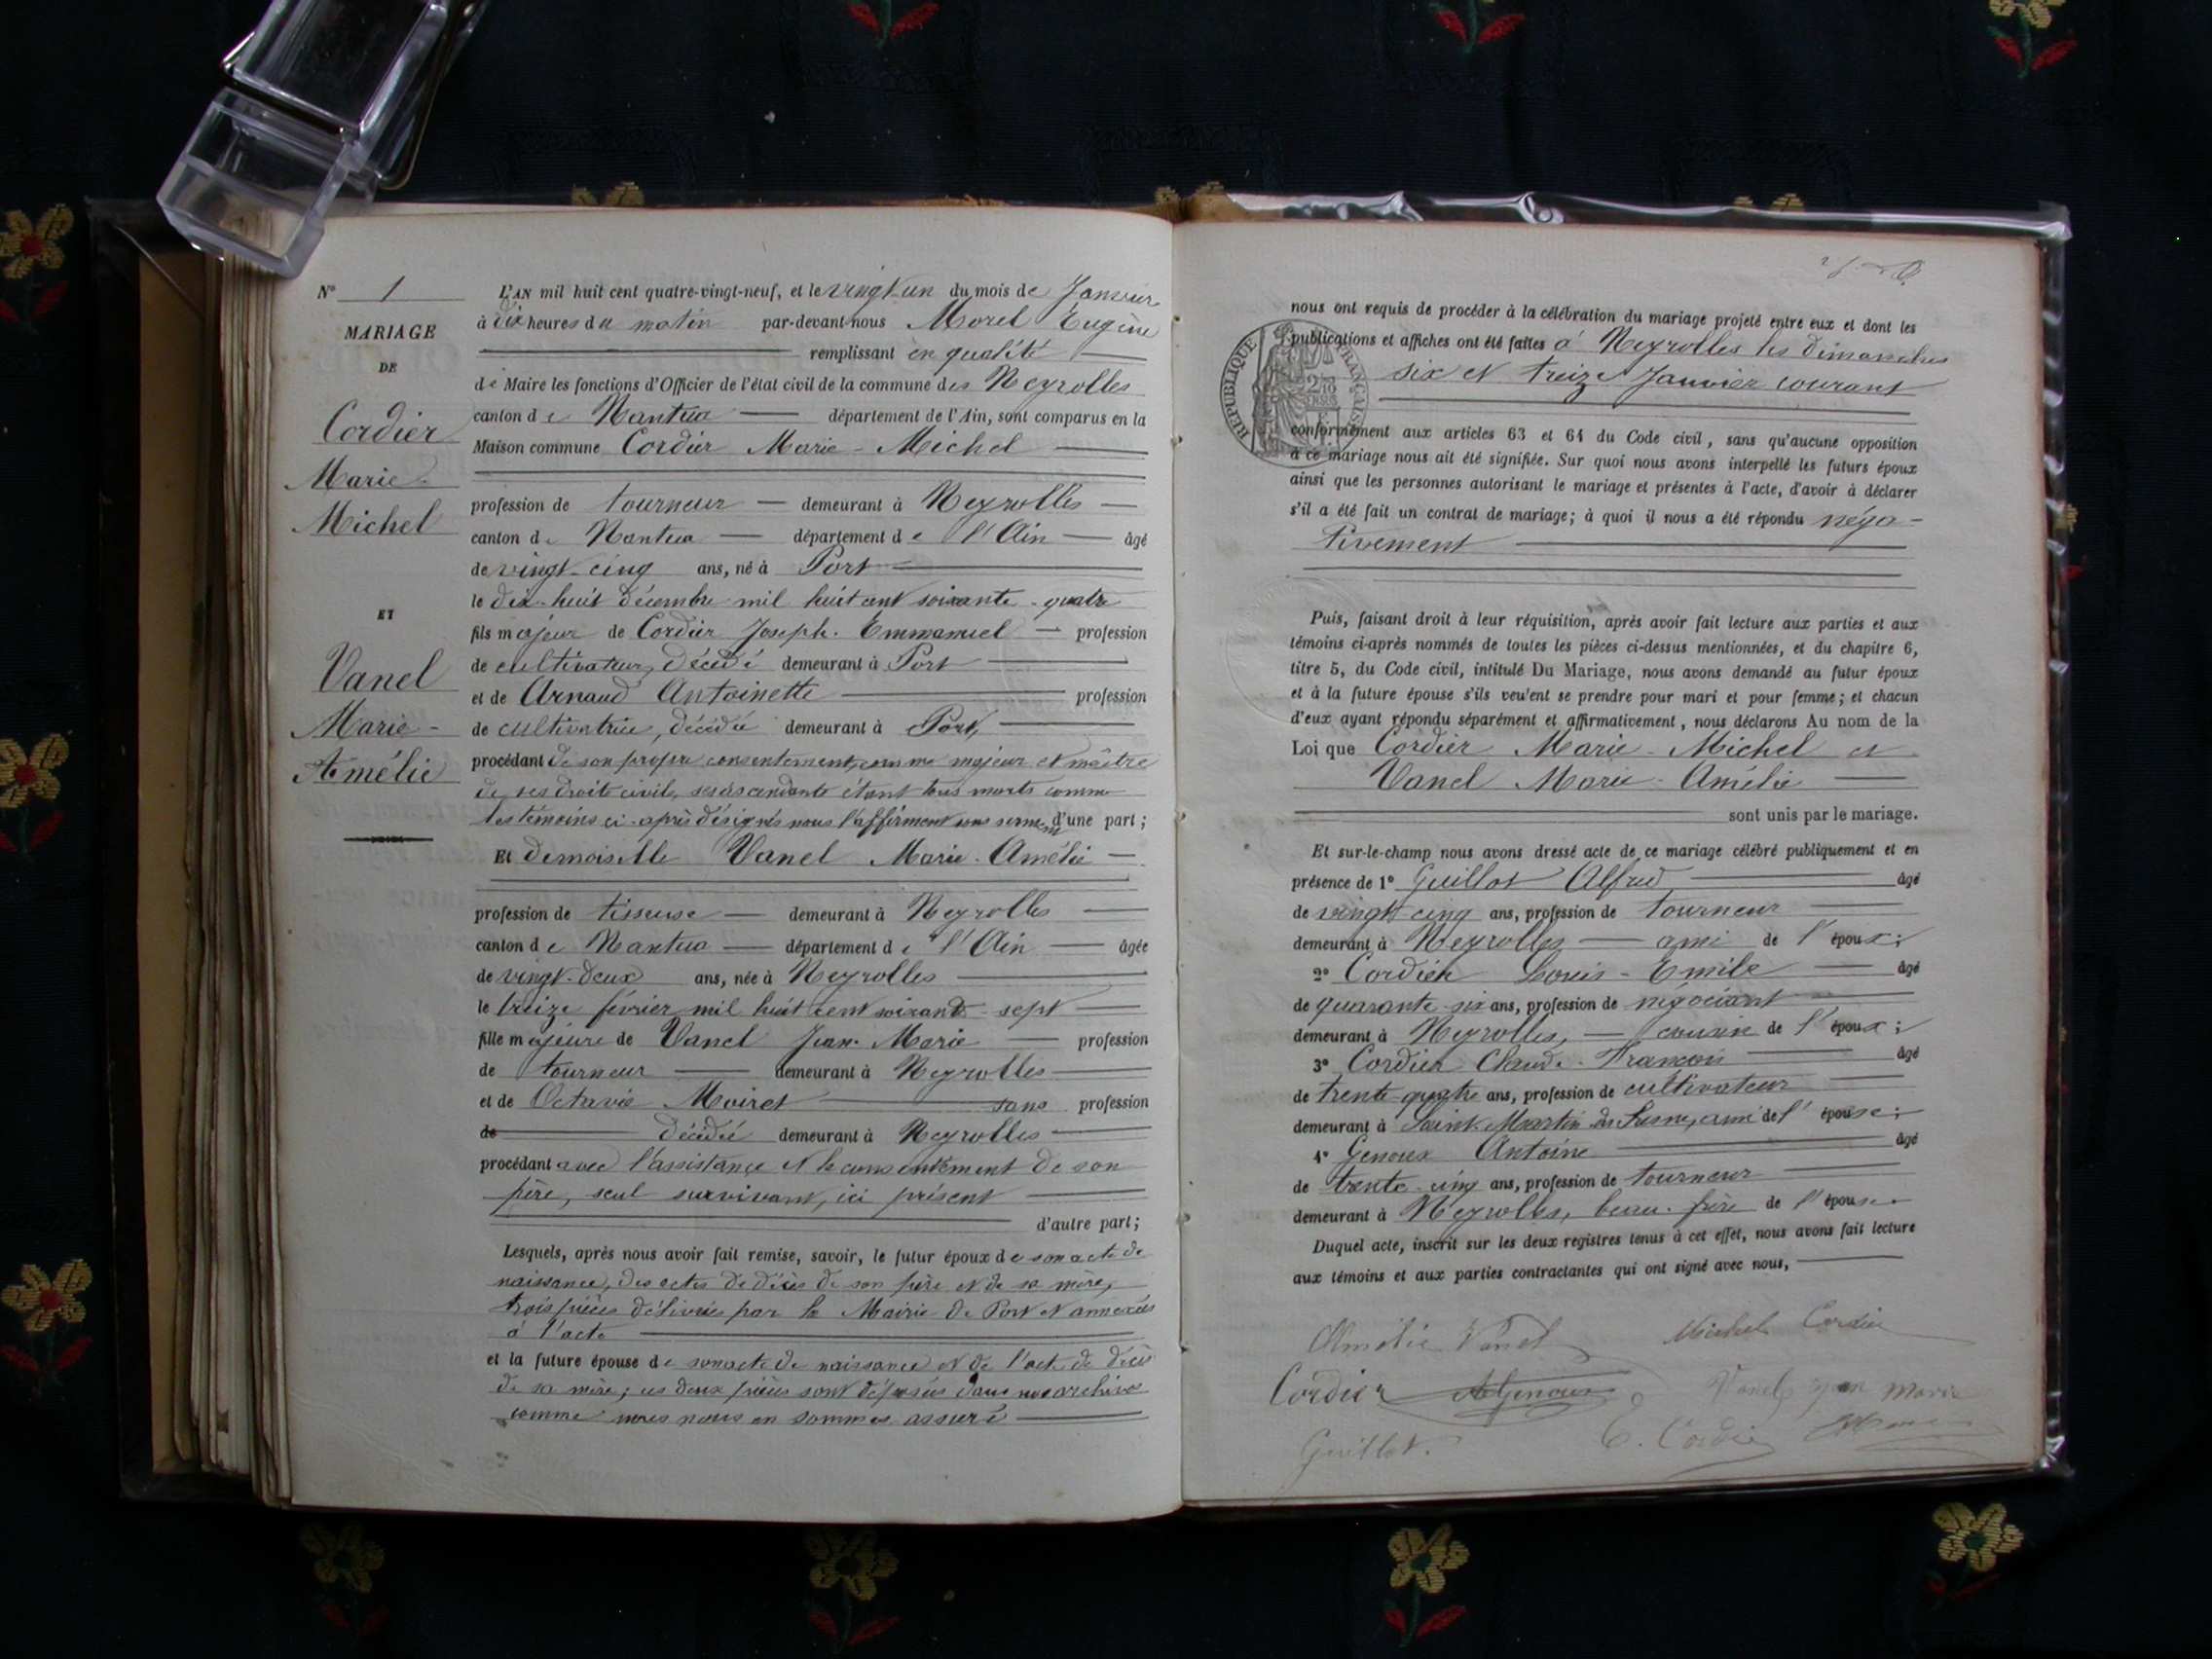 N° 1
MARIAGE
DE
Cordier
Marie-
Michel
ET
Vanel
Marie-
Amélie
L'AN mil huit cent quatre-vingt-neuf, et le vingt-un du mois de Janvier
à dix heures du matin par-devant nous Morel Eugène
remplissant en qualité
de Maire les fonctions d'Officier de l'état civil de la commune des Neyrolles
canton de Nantua département de l'Ain, sont comparus en la
Maison commune Cordier Marie-Michel
profession de tourneur demeurant à Neyrolles
canton de Nantua département de l'Ain âgé
de vingt-cinq ans, né à Port
le dix-huit décembre mil huit cent soixante-quatre
fils majeur de Cordier Joseph-Emmanuel profession
de cultivateur, décédé demeurant à Port
et de Arnaud Antoinette profession
de cultivatrice, décédée demeurant à Port,
procédant de son propre consentement, comme majeur et maître
de ses droits civils, ses ascendants étant tous morts comme
les témoins ci-après désignés nous l'affirment sous serment d'une part;
Et demoiselle Vanel Marie-Amélie
profession de tisseuse demeurant à Neyrolles
canton de Nantua département de l'Ain âgée
de vingt-deux ans, née à Neyrolles
le treize février mil huit cent soixante-sept
fille majeure de Vanel Jean-Marie profession
de tourneur demeurant à Neyrolles
et de Octavie Moiret sans profession
de décédée demeurant à Neyrolles
procédant avec l'assistance et le consentement de son
père, seul survivant, ici présent
d'autre part;
Lesquels, après nous avoir fait remise, savoir, le futur époux de son acte de
naissance, des actes de décès de son père et de sa mère,
trois pièces délivrées par la Mairie de Port et annexées
à l'acte
et la future épouse de son acte de naissance et de l'acte de décès
de sa mère; ces deux pièces sont déposées dans nos archives
comme nous nous en sommes assuré
nous ont requis de procéder à la célébration du mariage projeté entre eux et dont les
publications et affiches ont été faites à Neyrolles les dimanches
six et treize Janvier courant
RÉPUBLIQUE FRANÇAISE
conformément aux articles 63 et 64 du Code civil, sans qu'aucune opposition
à ce mariage nous ait été signifiée. Sur quoi nous avons interpellé les futurs époux
ainsi que les personnes autorisant le mariage et présentes à l'acte, d'avoir à déclarer
s'il a été fait un contrat de mariage; à quoi il nous a été répondu néga-
tivement
Puis, faisant droit à leur réquisition, après avoir fait lecture aux parties et aux
témoins ci-après nommés de toutes les pièces ci-dessus mentionnées, et du chapitre 6,
titre 5, du Code civil, intitulé Du Mariage, nous avons demandé au futur époux
et à la future épouse s'ils veulent se prendre pour mari et pour femme; et chacun
d'eux ayant répondu séparément et affirmativement, nous déclarons Au nom de la
Loi que Cordier Marie-Michel et
Vanel Marie-Amélie
sont unis par le mariage.
Et sur-le-champ nous avons dressé acte de ce mariage célébré publiquement et en
présence de 1° Guillot Alfred âgé
de vingt cinq ans, profession de tourneur
demeurant à Neyrolles ami de l'époux;
2° Cordier Louis-Emile âgé
de quarante-six ans, profession de négociant
demeurant à Neyrolles, cousin de l'époux;
3° Cordier Claude-François âgé
de trente-quatre ans, profession de cultivateur
demeurant à Saint-Martin du Fresne, ami de l'épouse;
4° Genoux Antoine âgé
de trente-cinq ans, profession de tourneur
demeurant à Neyrolles, beau-frère de l'épouse.
Duquel acte, inscrit sur les deux registres tenus à cet effet, nous avons fait lecture
aux témoins et aux parties contractantes qui ont signé avec nous,
Amélie Vanel Michel Cordier
Cordier A Genoux Vanel jean marie
Guillot. E. Cordier